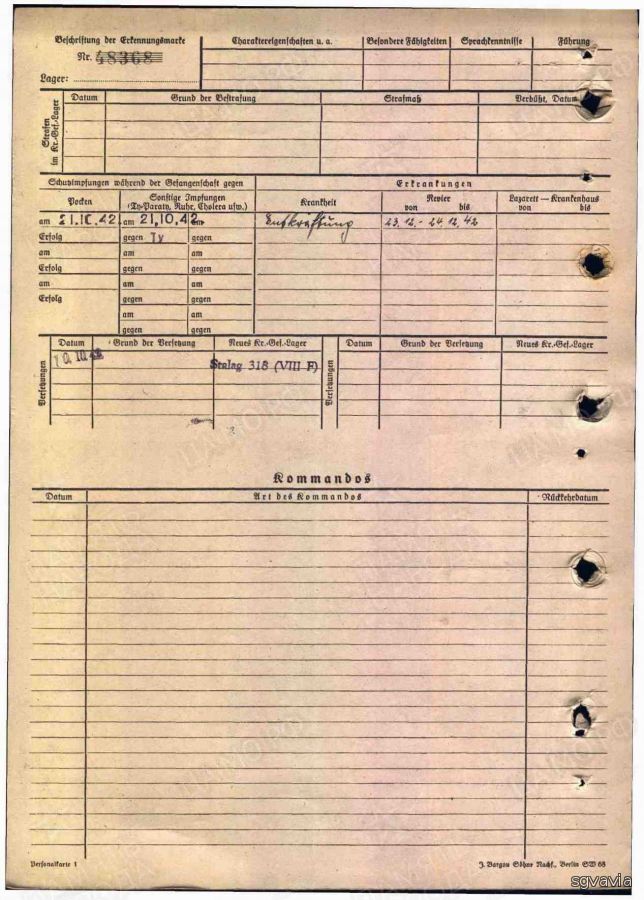 Beschriftung der Erkennungsmarke
Nr. 48368
Lager:
Charaktereigenschaften u. a.
Besondere Fähigkeiten
Sprachkenntnisse
Führung
Strafen im Kr.-Gef.-Lager
Datum
Grund der Bestrafung
Strafmaß
Verbüßt, Datum
Schutzimpfungen während der Gefangenschaft gegen
Erkrankungen
Pocken
Sonstige Impfungen
(Ty-Paraty, Ruhr, Cholera usw.)
Krankheit
Revier
von bis
Lazarett — Krankenhaus
von bis
am 21.10.42 am 21.10.42 am Entkräftung 23.12.- 24.12.42
Erfolg gegen Ty gegen
am am am
Erfolg gegen gegen
am am am
Erfolg gegen gegen
am am
gegen gegen
Versetzungen
Datum Grund der Versetzung Neues Kr.-Gef.-Lager
10.10.42 Stalag 318 (VIII F)
Versetzungen
Datum Grund der Versetzung Neues Kr.-Gef.-Lager
Kommandos
Datum Art des Kommandos Rückkehrdatum
Personalkarte 1
J. Bargou Söhne Nachf., Berlin SW 68
sgvavia